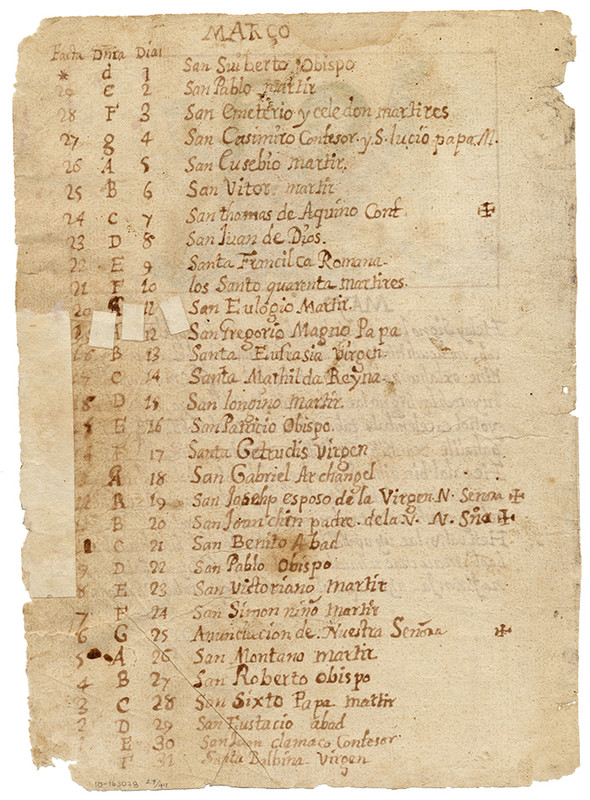 MARÇO
Facta Dnîa Dias
* d 1 San Suiberto Obispo
29 e 2 San Pablo martir
28 F 3 San Emeterio y celedon martires
27 g 4 San Casimiro Confesor y S. lucio papa M.
26 A 5 San Eusebio martir.
25 B 6 San Vitor martir
24 C 7 San thomas de Aquino Conf ✠
23 D 8 San Juan de Dios.
22 E 9 Santa Francisca Romana
21 F 10 los Santo quarenta martires.
20 San Eulogio Martir.
12 San Gregorio Magno Papa
B 13 Santa Eufrasia Virgen
C 14 Santa Mathilda Reyna
D 15 San longino martir.
E 16 San Patricio Obispo.
F 17 Santa Getrudis Virgen
18 San Gabriel Archangel
19 San Josehp esposo de la Virgen N. Señora ✠
B 20 San Joanchin padre de la V. N. Sña ✠
C 21 San Benito Abad
9 D 22 San Pablo Obispo
8 E 23 San Victoriano martir
7 F 24 San Simon niño martir
6 G 25 Anunciacion de Nuestra Señora ✠
5 A 26 San Montano martir
4 B 27 San Roberto obispo
3 C 28 San Sixto Papa martir
2 D 29 San Eustacio abad
E 30 San Juan clamaco Confesor
F 31 Santa Balbina Virgen
10-163078 29/44